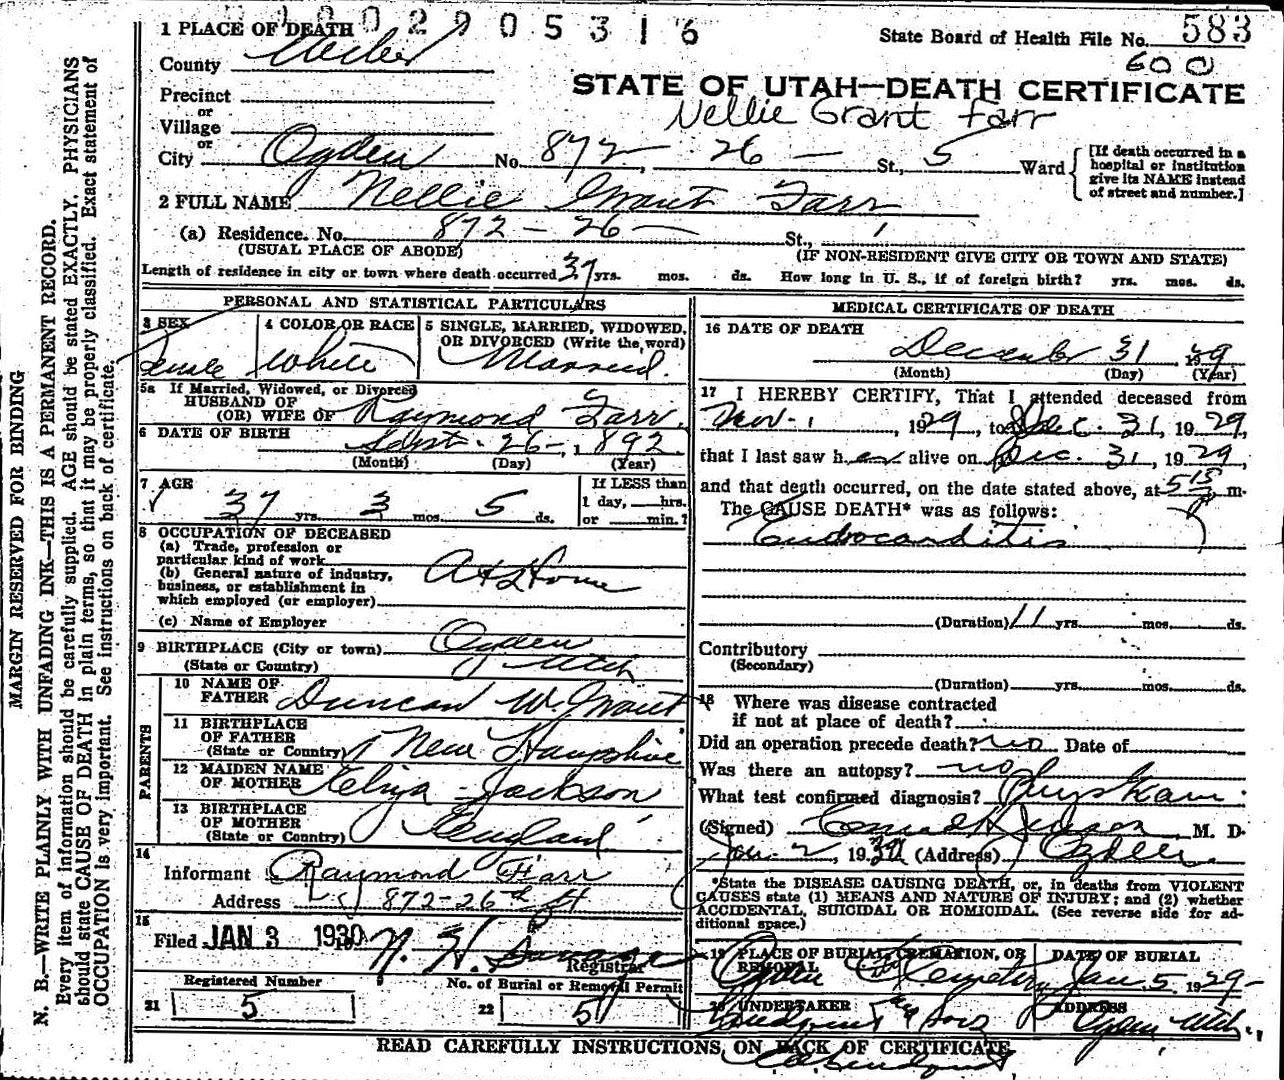 002905316
1 PLACE OF DEATH
State Board of Health File No. 583
600
County Weber
STATE OF UTAH—DEATH CERTIFICATE
Precinct
or
Village
Nellie Grant Farr
or
City Ogden No. 872 - 26 - St., 5 Ward
[If death occurred in a hospital or institution give its NAME instead of street and number.]
2 FULL NAME Nellie Grant Farr
(a) Residence. No. 872 - 26 - St.,
(USUAL PLACE OF ABODE) (IF NON-RESIDENT GIVE CITY OR TOWN AND STATE)
Length of residence in city or town where death occurred 37 yrs. mos. ds. How long in U. S., if of foreign birth? yrs. mos. ds.
PERSONAL AND STATISTICAL PARTICULARS
3 SEX
Female
4 COLOR OR RACE
White
5 SINGLE, MARRIED, WIDOWED, OR DIVORCED (Write the word)
Married.
5a If Married, Widowed, or Divorced
HUSBAND OF
(OR) WIFE OF Raymond Farr.
6 DATE OF BIRTH Sept. 26-, 1892.
(Month) (Day) (Year)
7 AGE
37 yrs. 3 mos. 5 ds.
If LESS than
1 day, hrs.
or min.?
8 OCCUPATION OF DECEASED
(a) Trade, profession or
particular kind of work
(b) General nature of industry,
business, or establishment in
which employed (or employer)
At Home
(c) Name of Employer
9 BIRTHPLACE (City or town) Ogden
(State or Country) Utah
PARENTS
10 NAME OF
FATHER Duncan W. Grant
11 BIRTHPLACE
OF FATHER
(State or Country) New Hampshire
12 MAIDEN NAME
OF MOTHER Eliza Jackson
13 BIRTHPLACE
OF MOTHER
(State or Country) England.
14
Informant Raymond Farr
Address 872-26th St
15
Filed JAN 3 1930
Registrar
Registered Number
21 5
No. of Burial or Removal Permit
22 5
MEDICAL CERTIFICATE OF DEATH
16 DATE OF DEATH
December 31 1929
(Month) (Day) (Year)
17 I HEREBY CERTIFY, That I attended deceased from
Nov. 1, 1929, to Dec. 31, 1929,
that I last saw her alive on Dec. 31, 1929,
and that death occurred, on the date stated above, at 5 15 P m.
The CAUSE DEATH* was as follows:
Endocarditis
(Duration) 11 yrs. mos. ds.
Contributory
(Secondary)
(Duration) yrs. mos. ds.
18 Where was disease contracted
if not at place of death?
Did an operation precede death? no Date of
Was there an autopsy? no
What test confirmed diagnosis?
(Signed) M. D.
Jan. 2, 1930 (Address) Ogden.
*State the DISEASE CAUSING DEATH, or, in deaths from VIOLENT
CAUSES state (1) MEANS AND NATURE OF INJURY; and (2) whether
ACCIDENTAL, SUICIDAL OR HOMICIDAL. (See reverse side for ad-
ditional space.)
19 PLACE OF BURIAL, CREMATION, OR
REMOVAL
Ogden Cemetery
DATE OF BURIAL
Jan 5, 1929-
20 UNDERTAKER
ADDRESS
Ogden, Utah.
READ CAREFULLY INSTRUCTIONS ON BACK OF CERTIFICATE
MARGIN RESERVED FOR BINDING
N. B.—WRITE PLAINLY WITH UNFADING INK—THIS IS A PERMANENT RECORD.
Every item of information should be carefully supplied. AGE should be stated EXACTLY. PHYSICIANS
should state CAUSE OF DEATH in plain terms, so that it may be properly classified. Exact statement of
OCCUPATION is very important. See instructions on back of certificate.